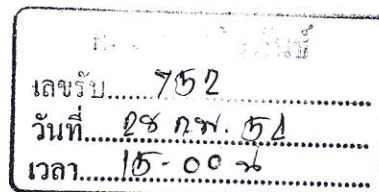 เลขรับ.....752
วันที่....28 กพ. 54
เวลา....15-00 น